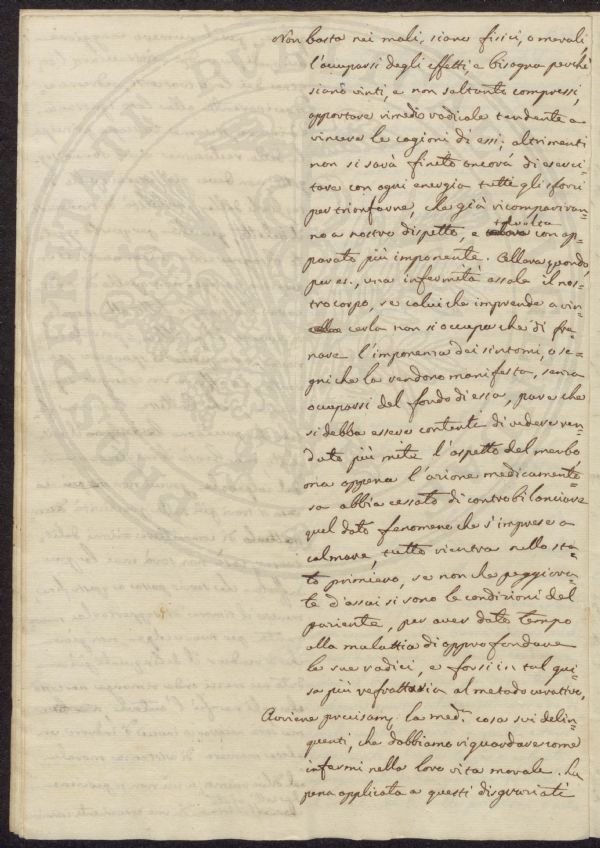 Non basta nei mali, siano fisici, o morali,
l'occuparsi degli effetti, e bisogna perchè
siano vinti, e non soltanto compressi,
apportare rimedio radicale tendente a
vincere le cagioni di essi; altrimenti
non si sarà finito ancora di eserci=
tare con ogni energia tutti gli sforzi
per trionfarne, che già ricompariran=
no a nostro dispetto, e talvolta con ap=
parato più imponente. Allora quando,
per es., una infermità assale il nos=
tro corpo, se colui che imprende a vin=
cerla non si occupa che di fre=
nare l'imponenza dei sintomi, o se=
gni che la rendono manifesta, senza
occuparsi del fondo di essa, pare che
si debba essere contenti di vedere ren=
dato più mite l'aspetto del morbo
ma appena l'azione medicamento=
sa abbia cessato di controbilanciare
quel dato fenomeno che s'imprese a
calmare, tutto rientra nello sta=
to primiero, se non che peggiora=
te d'assai si sono le condizioni del
paziente, per aver dato tempo
alla malattia di approfondare
le sue radici, e forsi in tal gui=
sa più refrattaria al metodo curativo.
Avviene precisam. la med.ª cosa sui delin=
quenti, che dobbiamo riguardare come
infermi nella loro vita morale. La
pena applicata a questi disgraziati